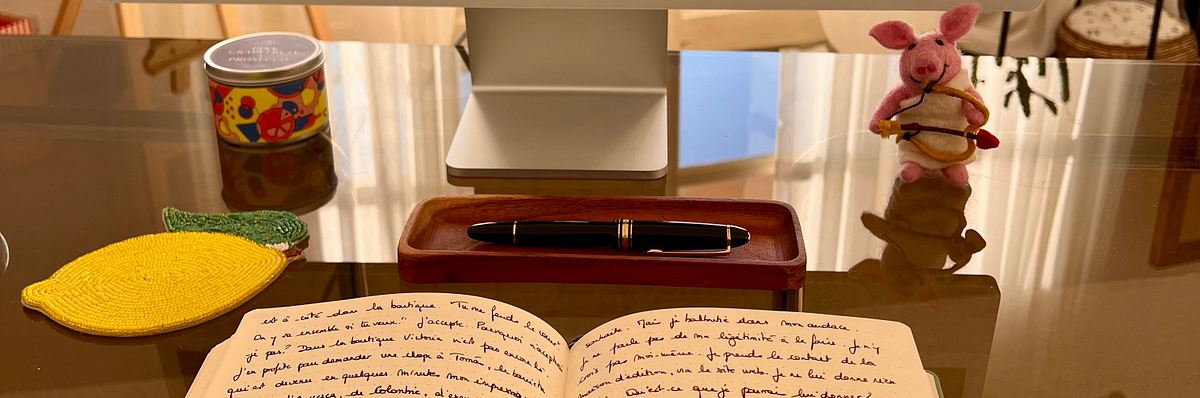 PINK
GRAPEFRUIT
PROSECCO
est à côté dans la boutique. "Tu me fends le cœur"
On y va ensemble si tu veux." J'accepte. Pourquoi n'accepterais
je pas? Dans la boutique Victoria n'est pas encore là
J'en profite pour demander une clope à Tomás, le barista
qui est devenu en quelques minutes mon
de Colombie,
souhaite. Mais j'hallucine dans mon audace.
Je ne parle pas de ma légitimité à le faire. Je n'y
crois pas moi-même. Je prends le contact de la
maison d'édition, via le site web. Je ne lui donne rien
Qu'est-ce que je pourrai lui donner?